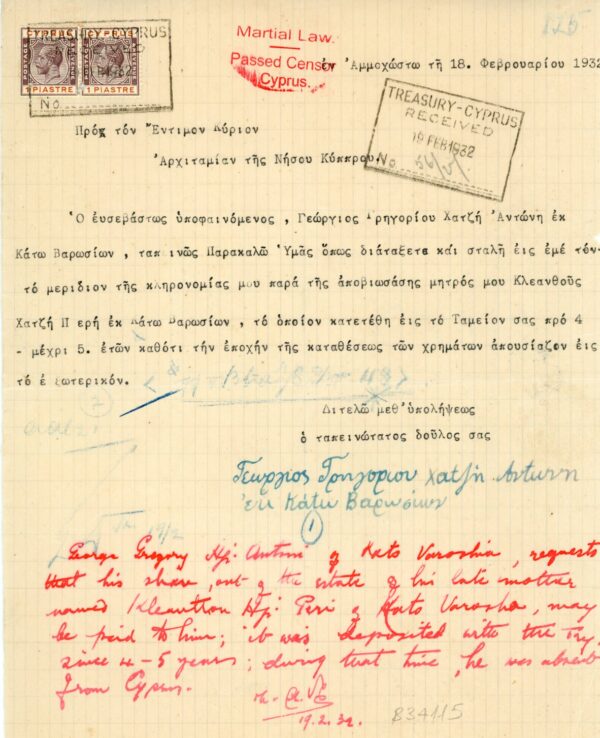 125
CYPRUS CYPRUS
POSTAGE REVENUE
1 PIASTRE 1 PIASTRE
TREASURY-CYPRUS
1932
No.
Martial Law.
Passed Censor
Cyprus.
ἐν Ἀμμοχώστω τῆ 18. Φεβρουαρίου 1932
TREASURY-CYPRUS
RECEIVED
19 FEB 1932
No.
Πρός τόν Ἔντιμον Κύριον
Ἀρχιταμίαν τῆς Νήσου Κύππρου.
Ὁ ἐυσεβάστως ὑποφαινόμενος , Γεώργιος Γρηγορίου Χατζῆ Ἀντώνη ἐκ
Κάτω Βαρωσίων , ταπεινῶς Παρακαλῶ Ὑμᾶς ὅπως διάταξετε καί σταλῆ ἐις ἐμέ τόν-
τό μερίδιον τῆς κληρονομίας μου παρά τῆς ἀποβιωσάσης μητρός μου Κλεανθοῦς
Χατζῆ Π ερή ἐκ Κάτω Βαρωσίων , τό ὁποίον κατετέθη ἐις τό Ταμείον σας πρό 4
- μέχρι 5. ἐτών καθότι τήν ἐποχήν τῆς καταθέσεως τῶν χρημάτων ἀπουσίαζον ἐις
τό ἐ ξωτερικόν.
Διτελῶ μεθ᾽ὑπολήψεως
ὁ ταπεινώτατος δοῦλος σας
Γεωργιος Γρηγοριου χατζη Αντωνη
ἐκ Κάτω Βαρωσιων
1
19/2
George Gregory Hji Antoni of Kato Varoshia, requests
that his share, out of the estate of his late mother
named Kleanthou Hji Peri of Kato Varosha, may
be paid to him; it was deposited with the Try,
since 4-5 years; during that time, he was absent
from Cyprus.
19.2.32.
B34115